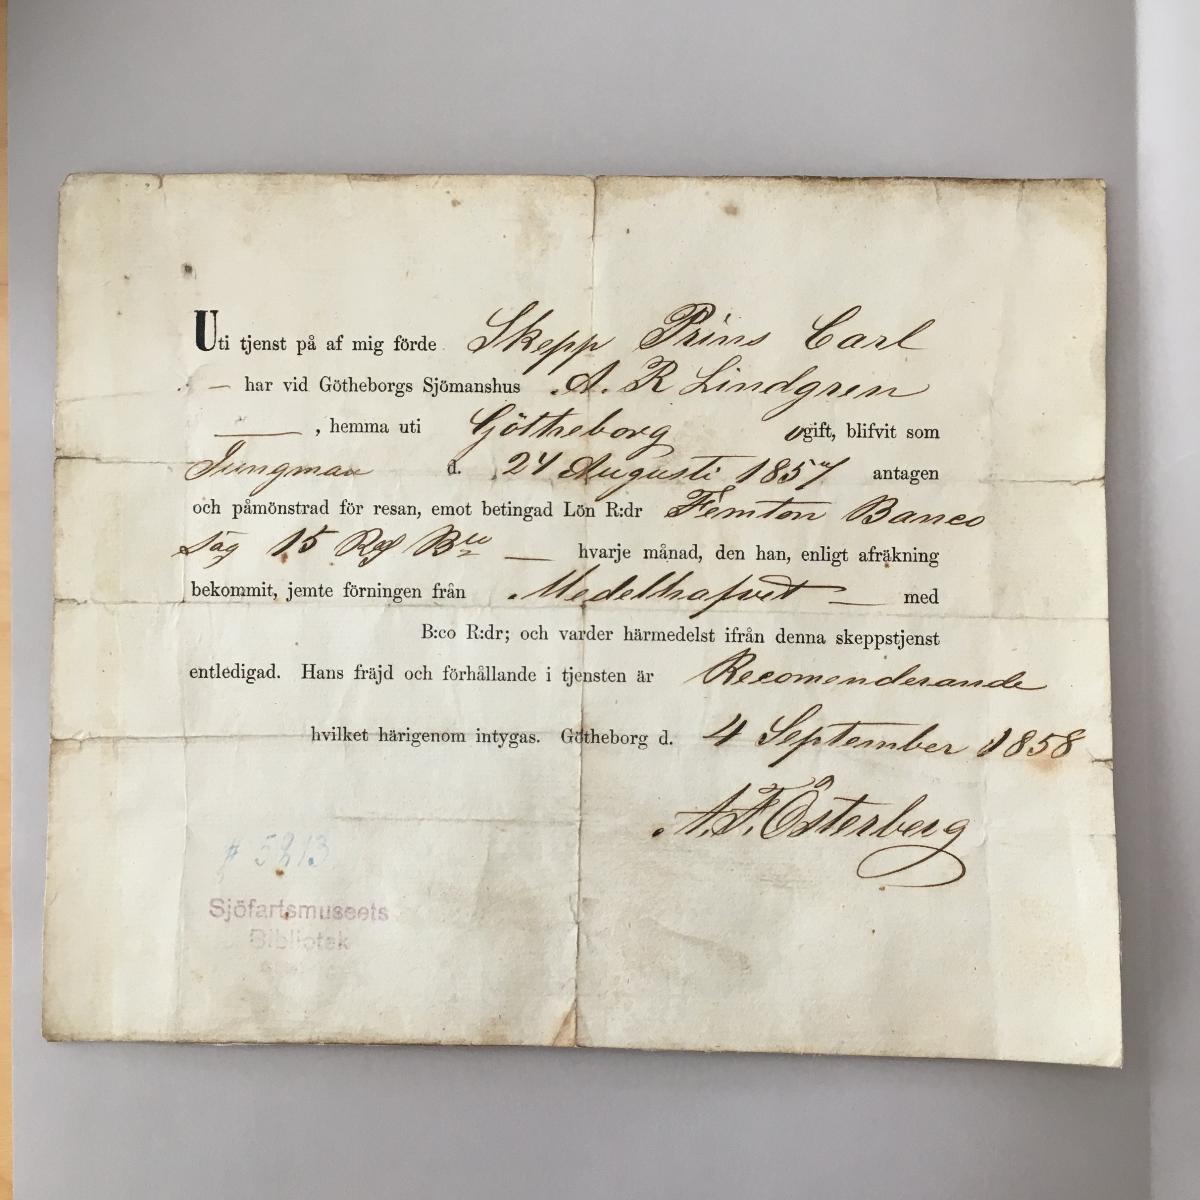 Uti tjenst på af mig förde Skepp Prins Carl
— har vid Götheborgs Sjömanshus A. R Lindgren
—— , hemma uti Götheborg ogift, blifvit som
Jungman d. 24 Augusti 1857 antagen
och påmönstrad för resan, emot betingad Lön R:dr Femton Banco
säg 15 Rd Bco — hvarje månad, den han, enligt afräkning
bekommit, jemte förningen från Medelhafvet — med
B:co R:dr; och varder härmedelst ifrån denna skeppstjenst
entledigad. Hans fräjd och förhållande i tjensten är Recomenderande
hvilket härigenom intygas. Götheborg d. 4 September 1858
A. F. Österberg
# 5213
Sjöfartsmuseets
Bibliotek